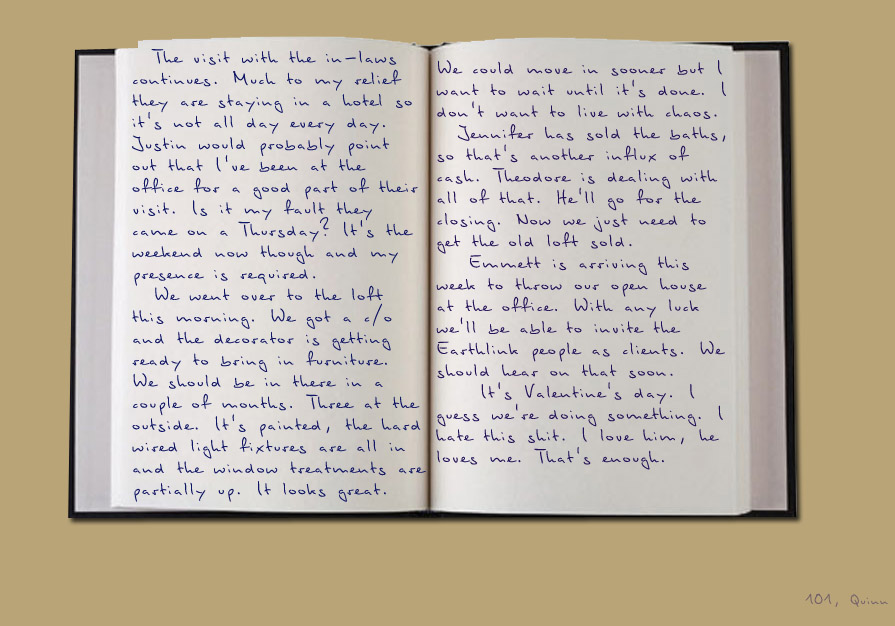 The visit with the in-laws
continues. Much to my relief
they are staying in a hotel so
it's not all day every day.
Justin would probably point
out that I've been at the
office for a good part of their
visit. Is it my fault they
came on a Thursday? It's the
weekend now though and my
presence is required.
We went over to the loft
this morning. We got a c/o
and the decorator is getting
ready to bring in furniture.
We should be in there in a
couple of months. Three at the
outside. It's painted, the hard
wired light fixtures are all in
and the window treatments are
partially up. It looks great.
We could move in sooner but I
want to wait until it's done. I
don't want to live with chaos.
Jennifer has sold the baths,
so that's another influx of
cash. Theodore is dealing with
all of that. He'll go for the
closing. Now we just need to
get the old loft sold.
Emmett is arriving this
week to throw our open house
at the office. With any luck
we'll be able to invite the
Earthlink people as clients. We
should hear on that soon.
It's Valentine's day. I
guess we're doing something. I
hate this shit. I love him, he
loves me. That's enough.
101, Quinn